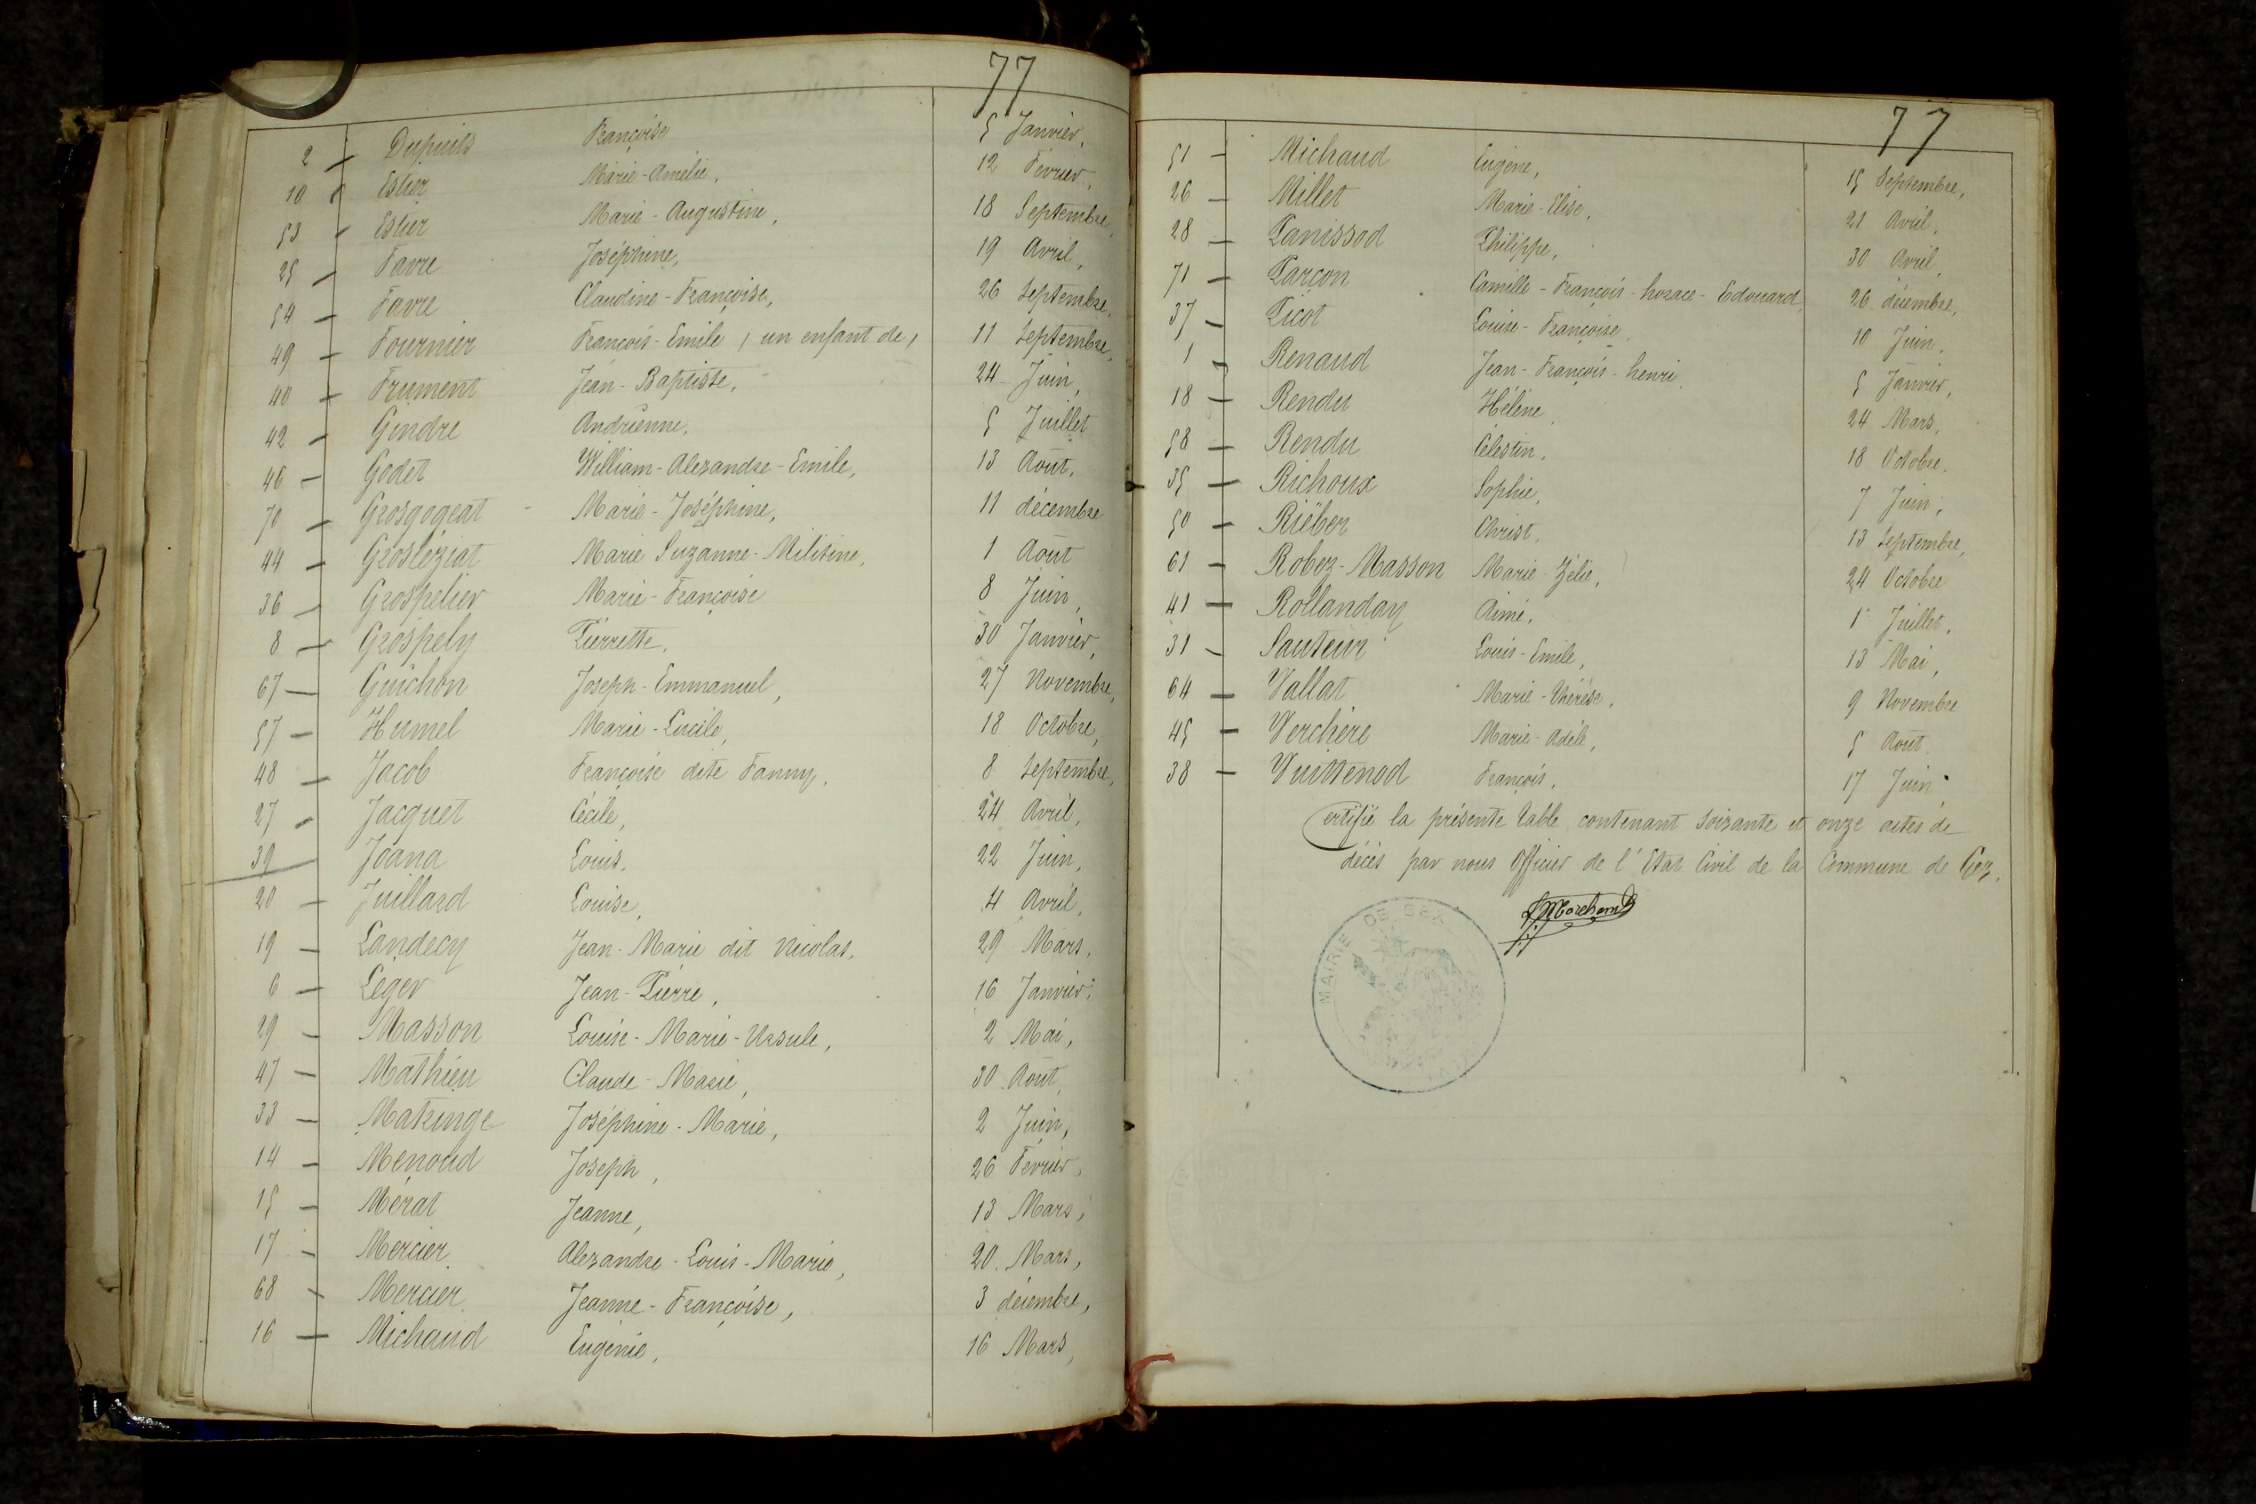 77
2 Dupuits Françoise 5 Janvier,
10 Estier Marie-Amélie, 12 Février,
53 Estier Marie-Augustine, 18 Septembre,
25 Favre Joséphine, 19 Avril,
54 Favre Claudine-Françoise, 26 Septembre,
49 Fournier François-Emile, un enfant de, 11 Septembre,
40 Frument Jean-Baptiste, 24 Juin,
42 Gindre Andrienne, 5 Juillet
46 Godet William-Alexandre-Emile, 13 Août,
70 Grosgogeat Marie-Joséphine, 11 décembre
44 Grosléziat Marie Suzanne-Mélisine, 1 Août
36 Grospelier Marie-Françoise 8 Juin,
8 Grospely Pierrette, 30 Janvier,
67 Guichon Joseph-Emmanuel, 27 Novembre,
57 Humel Marie-Lucile, 18 Octobre,
48 Jacob Françoise dite Fanny, 8 Septembre,
27 Jacquet Cécile, 24 Avril,
39 Joana Louis. 22 Juin,
20 Juillard Louise, 4 Avril,
19 Landecy Jean-Marie dit Nicolas, 29 Mars,
6 Leger Jean-Pierre, 16 Janvier,
29 Masson Louise-Marie-Ursule, 2 Mai,
47 Mathieu Claude-Marie, 30 Août,
33 Matringe Joséphine-Marie, 2 Juin,
14 Menoud Joseph, 26 Février,
15 Mérat Jeanne, 13 Mars,
17 Mercier Alexandre-Louis-Marie, 20 Mars,
68 Mercier Jeanne-Françoise, 3 décembre,
16 Michaud Eugénie, 16 Mars,
77
51 Michaud Eugène, 15 Septembre,
26 Millet Marie-Elise, 21 Avril,
28 Panissod Philippe, 30 Avril,
71 Parçon Camille-François-horace-Edouard, 26 décembre,
37 Picot Louise-Françoise, 10 Juin,
1 Renaud Jean-François-henri, 5 Janvier,
18 Rendu Hélène, 24 Mars,
58 Rendu Célestin, 18 Octobre,
35 Richoux Sophie, 7 Juin,
50 Riéber Christ, 13 Septembre,
61 Robez-Masson Marie-Zélie, 24 Octobre
41 Rollanday Aimé, 1 Juillet,
31 Sauteur Louis-Emile, 13 Mai,
64 Vallat Marie-Thérèse, 9 Novembre
45 Verchère Marie-Adèle, 5 Août
38 Vuittenod François, 17 Juin,
Certifié la présente table contenant soixante et onze actes de
décès par nous Officier de l'Etat Civil de la Commune de Gex,
MAIRIE DE GEX